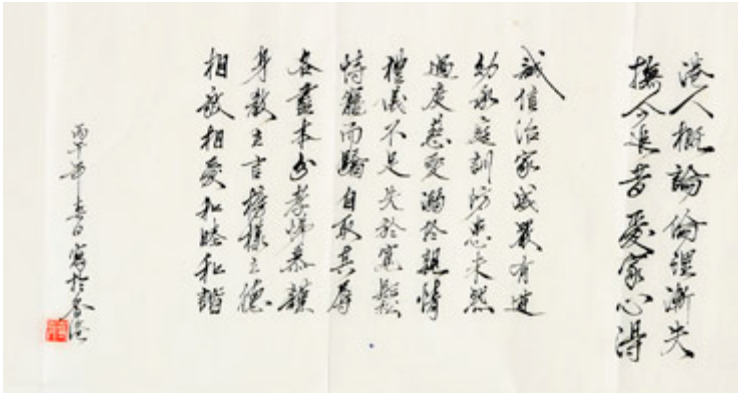 港人概論倫理漸失
撫今追昔愛家心得
誠信治家威嚴有道
幼承庭訓防患未然
過度慈愛溺於親情
禮儀不足失於寬鬆
恃寵而驕自取其辱
各盡本分孝悌恭謙
身教立言榜樣立德
相敬相愛和睦和諧
丙午年春日寫於香港